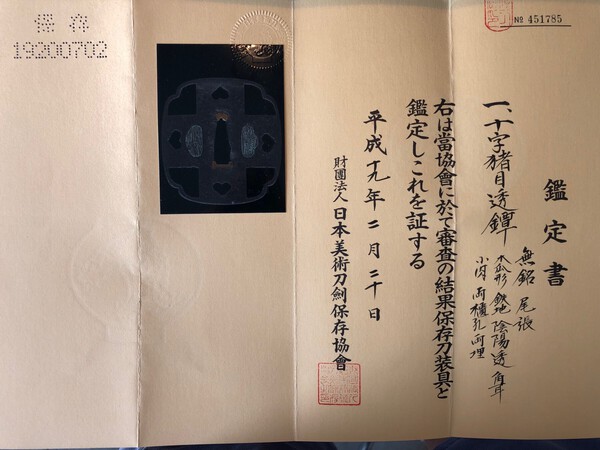 № 451785
鑑定書
一、十字猪目透鐔
無銘 尾張
木瓜形 鉄地 陰陽透 角耳
小肉 両櫃孔 両埋
右は當協會に於て審査の結果保存刀装具と
鑑定しこれを証する
平成十九年二月二十日
財團法人 日本美術刀劍保存協會
保存
19200702